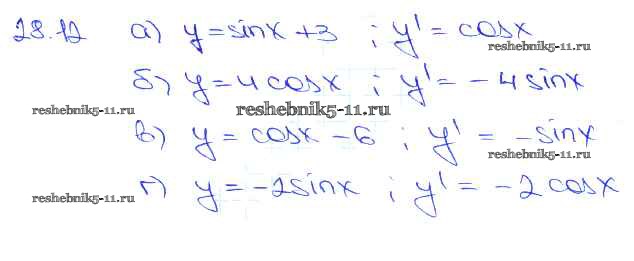 28.12 а) y = sinx + 3 ; y' = cosx
reshebnik5-11.ru
б) y = 4 cosx ; y' = - 4 sinx
reshebnik5-11.ru reshebnik5-11.ru
в) y = cosx - 6 ; y' = - sinx
reshebnik5-11.ru
г) y = - 2 sinx ; y' = - 2 cosx
reshebnik5-11.ru reshebnik5-11.ru